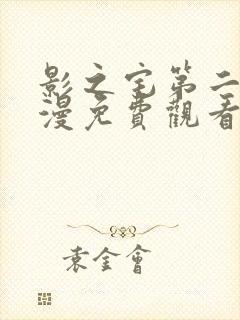 影之宅第二
漫免費觀看
袁金會